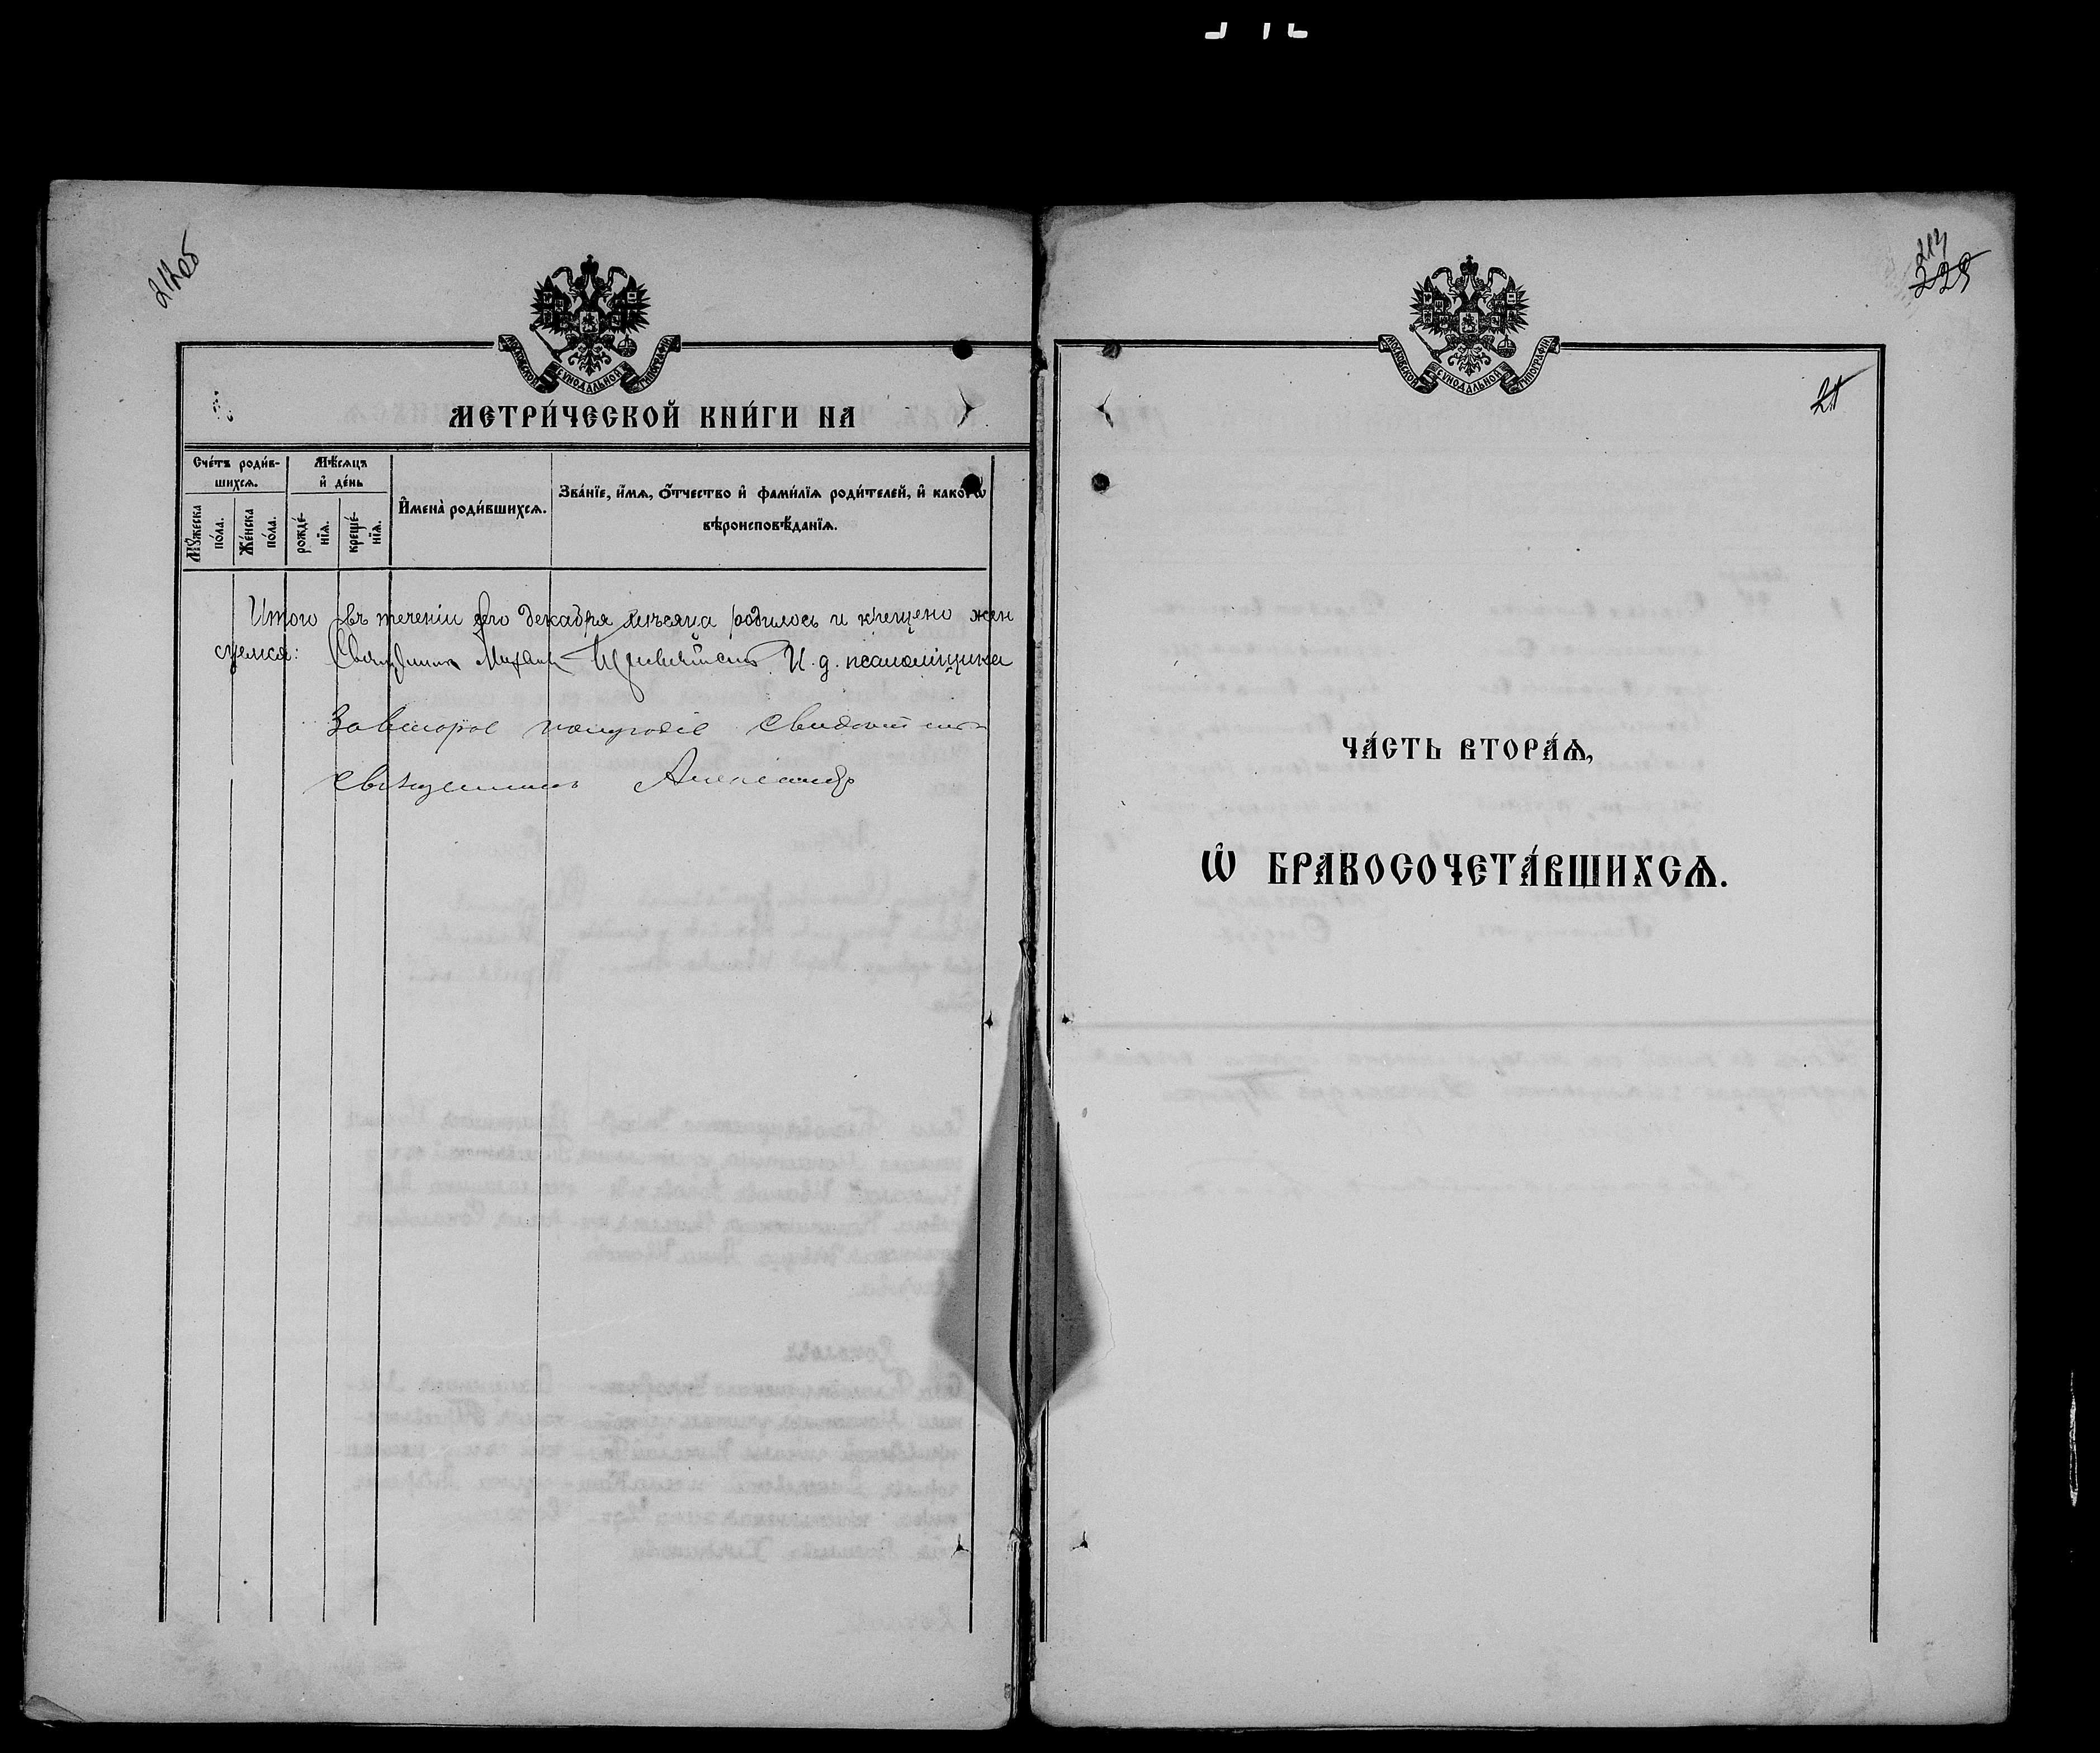 212об
МОСКОВСКОЙ СѴНОДАЛЬНОЙ ТИПОГРАФІИ
МЕТРИ́ЧЕСКОЙ КНИ́ГИ НА
Сче́тъ роди́в-
шихсѧ.
Мѣ́сѧцъ
и҆ де́нь
И҆мена̀ роди́вшихсѧ.
Зва́нїе, и҆́мѧ, ѻ҆́тчество и҆ фами́лїѧ роди́телей, и҆ како́гѡ
вѣроисповѣ́данїѧ.
Мꙋ́жеска
по́ла.
Же́нска
по́ла.
рожде́-
нїѧ.
креще́-
нїѧ.
Итого въ теченіи декабря мѣсяца родилось и крещено жен
Священникъ Михаилъ И. д. псаломщика
За второе полугодіе
священникъ Александр
213
229
МОСКОВСКОЙ СѴНОДАЛЬНОЙ ТИПОГРАФІИ
21
ЧА́СТЬ ВТОРА́Ѧ,
Ѡ҆ БРАКОСОЧЕТА́ВШИХСѦ.